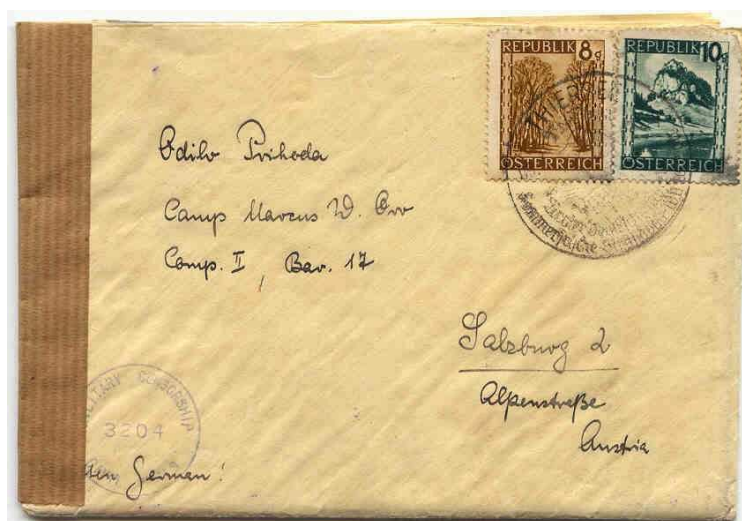 REPUBLIK 8g
ÖSTERREICH
REPUBLIK 10g
ÖSTERREICH
Odilo Prihoda
Camp Marcus W. Orr
Comp. II, Bar. 17
Salzburg 2
Alpenstraße
Austria
CENSORSHIP
3204
German!